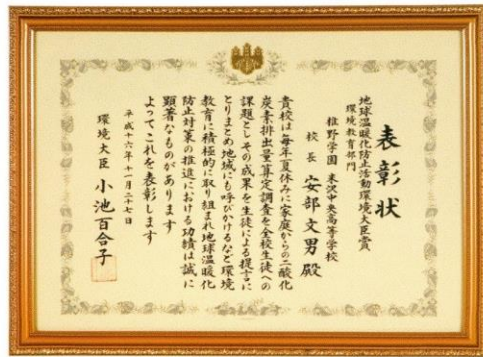 表彰状
地球温暖化防止活動環境大臣賞
環境教育部門
椎野学園 米沢中央高等学校
校長 安部文男 殿
貴校は毎年夏休みに家庭からの二酸化
炭素排出量算定調査を全校生徒への
課題としその成果を生徒による提言に
とりまとめ地域にも呼びかけるなど環境
教育に積極的に取り組まれ地球温暖化
防止対策の推進における功績は誠に
顕著なものがあります
よってこれを表彰します
平成十六年十一月二十七日
環境大臣 小池百合子